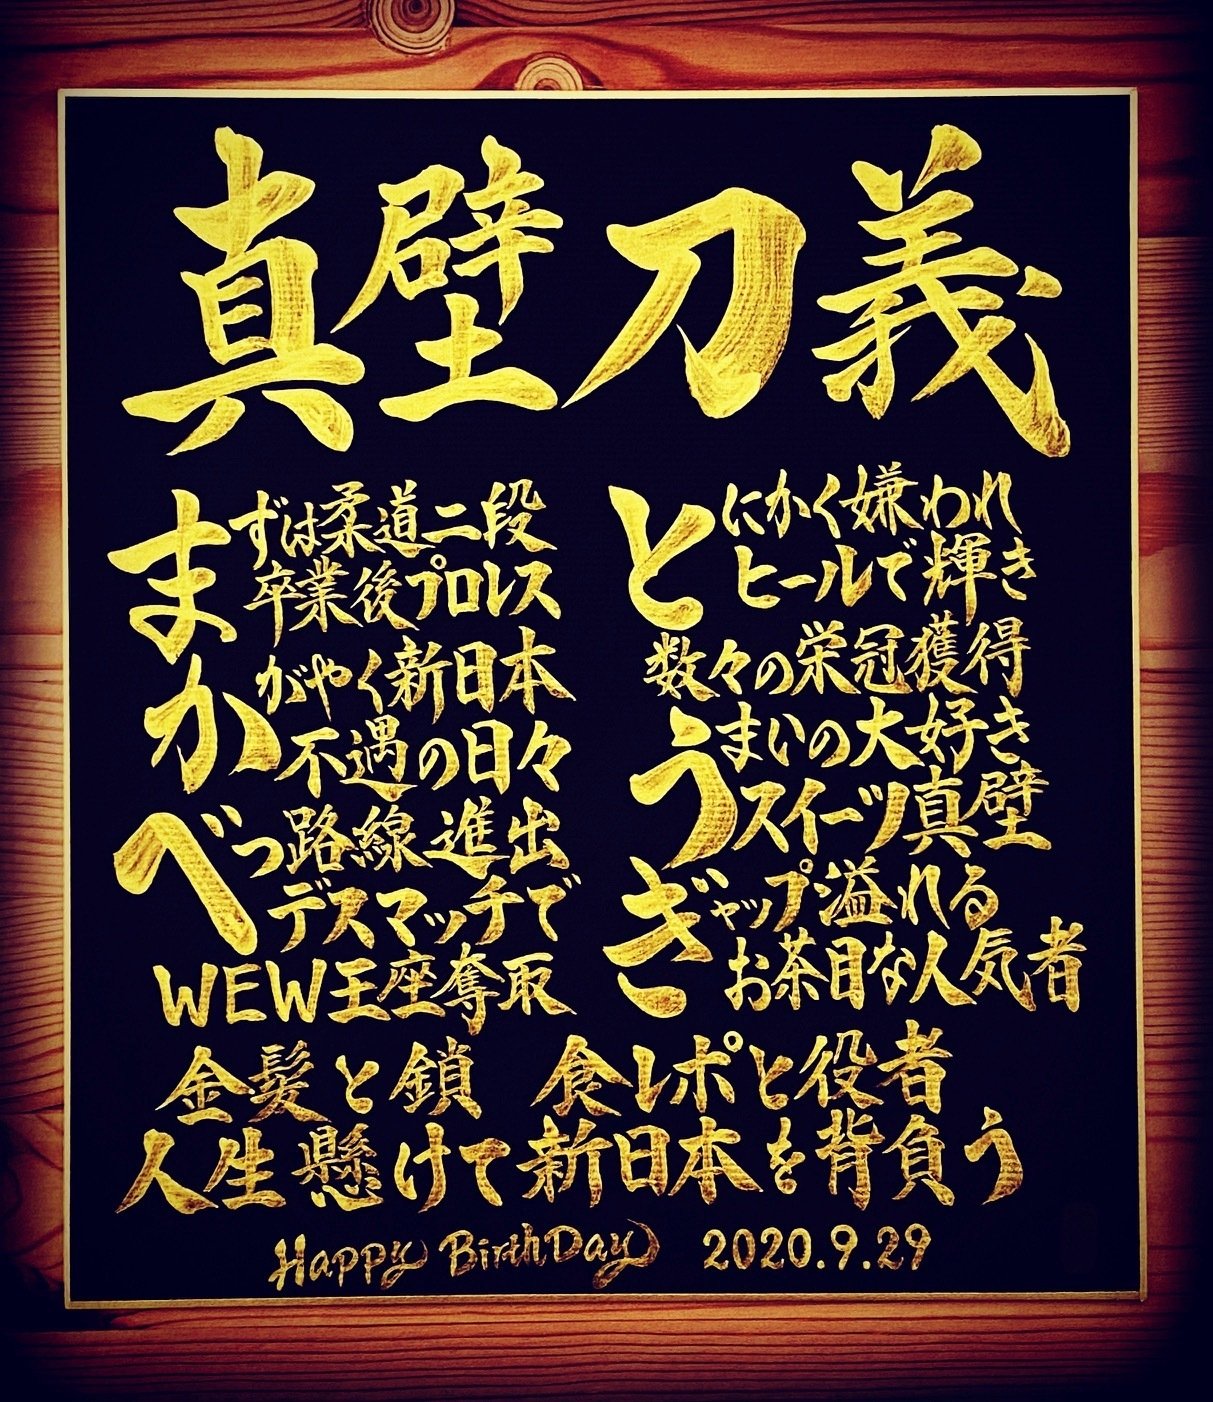 真壁刀義
まずは柔道二段
卒業後プロレス
かがやく新日本
不遇の日々
べつ路線進出
デスマッチで
WEW王座奪取
とにかく嫌われ
ヒールで輝き
数々の栄冠獲得
うまいの大好き
スイーツ真壁
ぎャップ溢れる
お茶目な人気者
金髪と鎖 食レポと役者
人生懸けて新日本を背負う
Happy BirthDay 2020.9.29